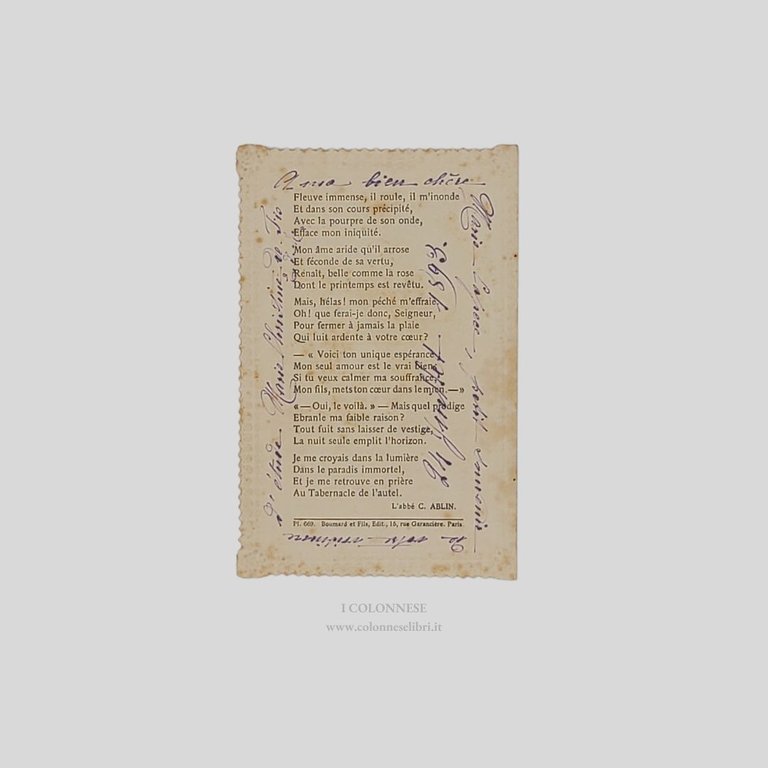 A ma bien chère
Fleuve immense, il roule, il m'inonde
Et dans son cours précipité,
Avec la pourpre de son onde,
Efface mon iniquité.
Mon âme aride qu'il arrose
Et féconde de sa vertu,
Renaît, belle comme la rose
Dont le printemps est revêtu.
Mais, hélas! mon péché m'effraie,
Oh! que ferai-je donc, Seigneur,
Pour fermer à jamais la plaie
Qui luit ardente à votre cœur?
— « Voici ton unique espérance
Mon seul amour est le vrai bien,
Si tu veux calmer ma souffrance,
Mon fils, mets ton cœur dans le mien. — »
« — Oui, le voilà. » — Mais quel prodige
Ebranle ma faible raison?
Tout fuit sans laisser de vestige,
La nuit seule emplit l'horizon.
Je me croyais dans la lumière
Dans le paradis immortel,
Et je me retrouve en prière
Au Tabernacle de l'autel.
L'abbé C. ABLIN.
Pl. 669. Boumard et Fils, Edit., 15, rue Garancière. Paris
petit souvenir
de votre
d'étude Marie Christine
1893
I COLONNESE
www.colonneselibri.it